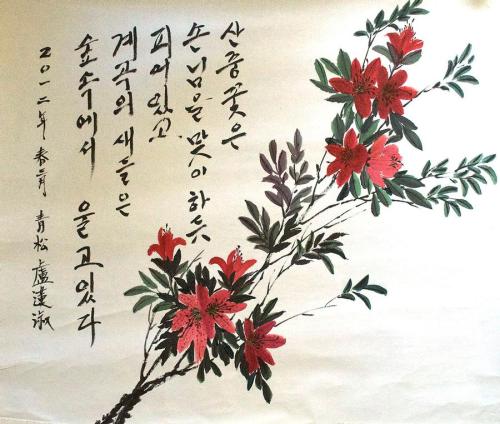 산중꽃은
손님을 맞이 하듯
피어있고
계곡의 새들은
숲속에서 울고있다
二〇一二年 春月 青松 盧蓮淑